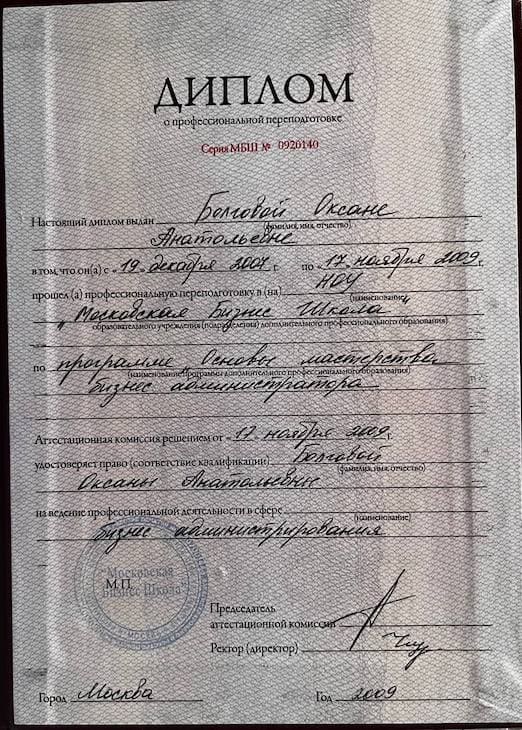 ДИПЛОМ
о профессиональной переподготовке
Серия МБШ № 0920140
Настоящий диплом выдан Болговой Оксане
(фамилия, имя, отчество)
Анатольевне
в том, что он(а) с «19» декабря 2007 г. по «17» ноября 2009 г.
прошел (а) профессиональную переподготовку в (на) НОУ
(наименование
"Московская Бизнес Школа"
образовательного учреждения (подразделения) дополнительного профессионального образования)
по программе Основы мастерства
(наименование программы дополнительного профессионального образования)
бизнес администратора
Аттестационная комиссия решением от «17» ноября 2009 г.
удостоверяет право (соответствие квалификации) Болговой
(фамилия, имя, отчество)
Оксаны Анатольевны
на ведение профессиональной деятельности в сфере
(наименование)
бизнес администрирования
"Московская
М.П.
Бизнес Школа"
Председатель
аттестационной комиссии
Ректор (директор)
Город Москва Год 2009